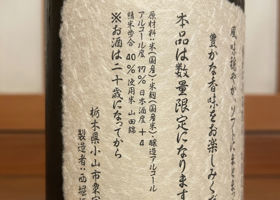 風味
豊かな香味をお楽しみくだ
本品は数量限定になります
原材料:米(国産)・米麹(国産米)醸造アルコール
アルコール度 17% 日本酒度 +4
精米歩合 40% 使用米 山田錦
※お酒は二十歳になってから
栃木県小山市粟宮
製造者:西堀